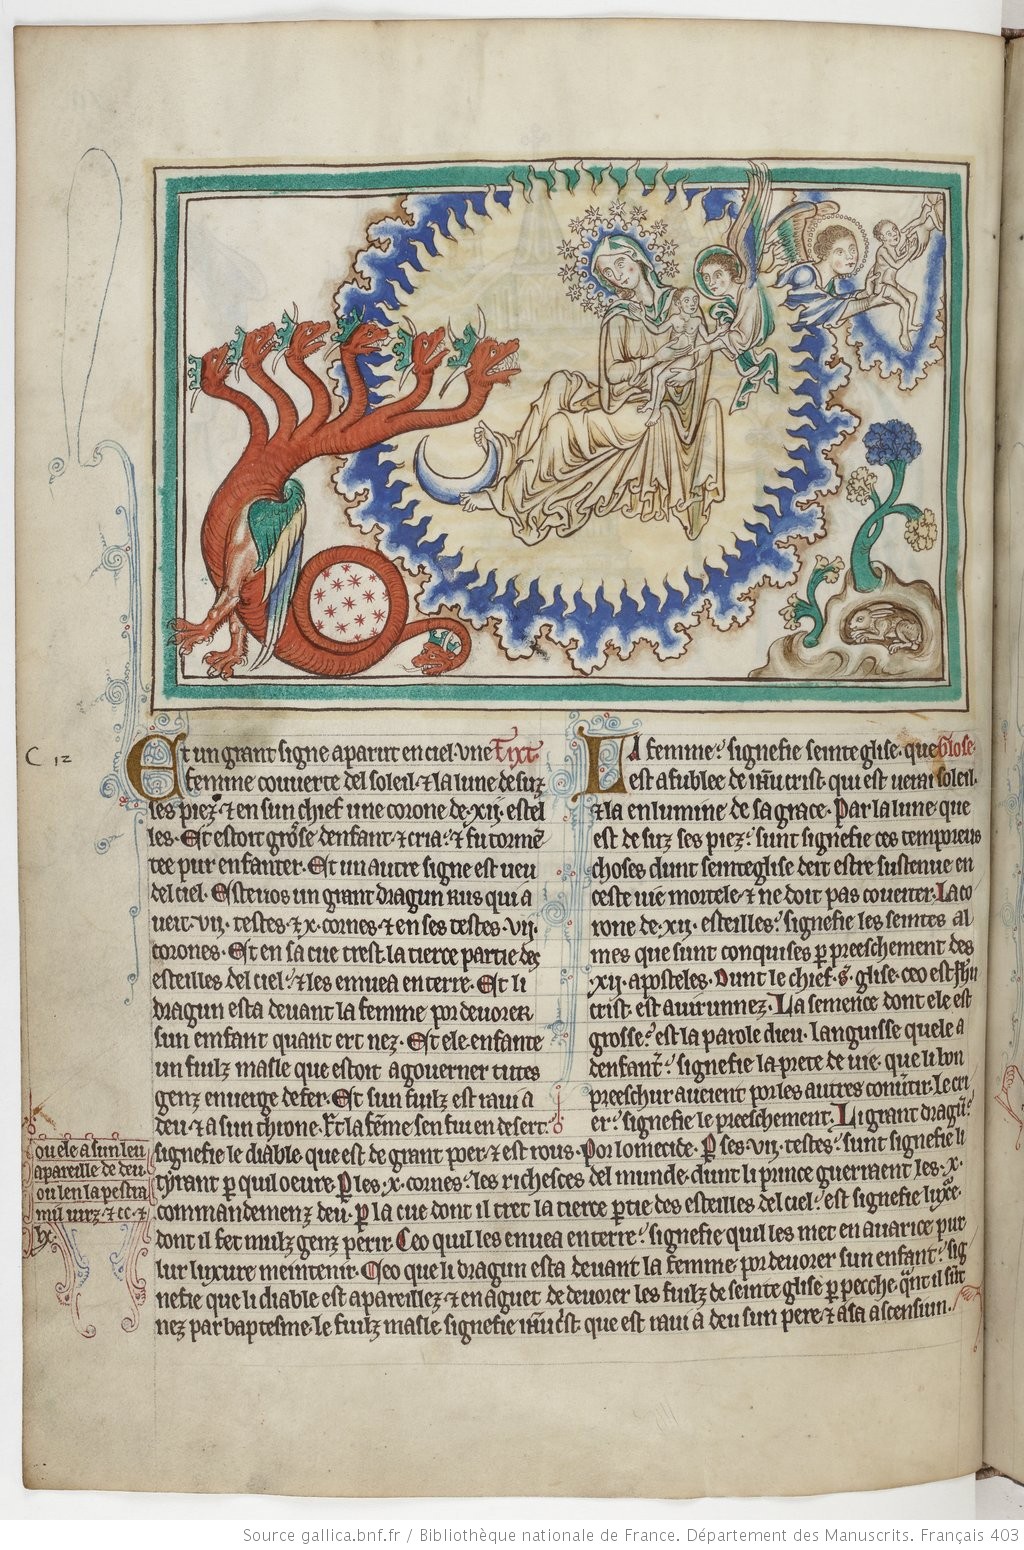 C 12
Et un grant signe aparut en ciel · Une Tixt
femme couverte del soleil · ⁊ la lune de suz
ses piez · ⁊ en sun chief une corone de · xij · estel
les · Et estoit grosse denfant · ⁊ cria · ⁊ fu tormē
tee pur enfanter · Et un autre signe est veu
del ciel · Este vos un grant dragun rus qui a
veit · vij · testes · ⁊ x · cornes · ⁊ en ses testes · vij ·
corones · Et en sa cue trest la tierce partie des
esteilles del ciel · ⁊ les enuea en terre · Et li
dragun esta devant la femme por devorer
sun emfant quant ert nez · Et ele enfante
un fuilz masle que estoit a governer tutes
genz en verge de fer · Et sun fuilz est ravi a
deu · ⁊ a sun throne · Et la fēme sen fui en desert ·
ou ele a sun leu
apareille de deu ·
ou len la pestra
mil iurz · ⁊ cc · ⁊
lx ·
La femme · signefie seinte glise · que Glose ·
est afublee de iħu crist · qui est verai soleil ·
⁊ la enlumine de sa grace · Par la lune que
est de suz ses piez · sunt signefie ces temporeus
choses dunt seinte glise deit estre sustenue en
ceste vie mortele · ⁊ ne doit pas coveiter · La co
rone de · xij · esteilles · signefie les seintes al
mes que sunt conquises p preeschement des
· xij · aposteles · Dunt le chief · s · glise · ceo est ihū
crist · est avirunnez · La semence dont ele est
grosse · est la parole dieu · langusse quele a
denfant · signefie la purete de vie · que li bon
preeschur aveient por les autres comūtir · Le cri
er · signefie le preeschement · Li grant dragū ·
signefie le diable que est de grant poer · ⁊ est rous · Por lomecide · P ses · vij · testes · sunt signefie li
tyrant p qui loeure · P les · x · cornes · les richesces del munde · dunt li prince guerraient les · x ·
commandemenz deu · p la cue dont il tret la tierce ptie des esteilles del ciel · est signefie luxure ·
dont il fet mulz genz perir · Ceo quil les enuea en terre · signefie quil les met en avarice pur
lur luxure meintenir · Ceo que li dragun esta devant la femme · por devorer sun enfant · sig
nefie que li diable est apareillez · ⁊ en aguet de devorer les fuilz de seinte glise p pecche · qnt il sūt
nez par baptesme · le fuilz masle · signefie iħu crist que est ravi a deu sun pere · ⁊ a sa ascensiun ·
Source gallica.bnf.fr / Bibliothèque nationale de France. Département des Manuscrits. Français 403